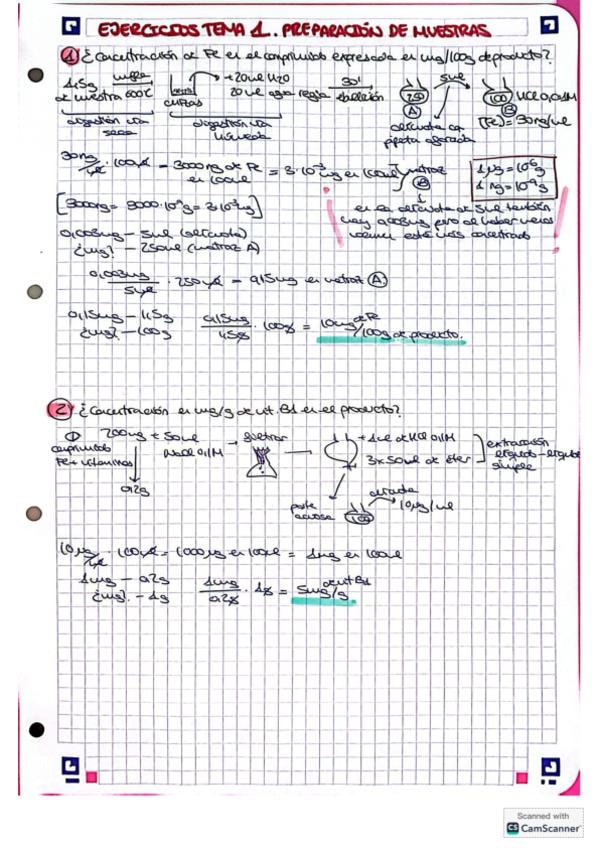 EJERCICIOS TEMA 1. PREPARACIÓN DE MUESTRAS
1 ¿Concentración de Fe en el comprimido expresada en mg/100g de producto?
1,5g de muestra mufla 600ºC
+20ml H2O
20ml agua regia 30' ebullición
250 A
5ml
100 B HCl 0,1M
[Fe] = 30ng/ml
digestión vía seca
cenizas
digestión vía húmeda
alícuota con pipeta aforada
30ng/ml · 100ml = 3000ng de Fe en 100ml = 3·10⁻³mg en 100ml matraz B
1µg = 10⁻⁶g
1ng = 10⁻⁹g
[3000ng = 3000·10⁻⁹g = 3·10⁻³mg]
en la alícuota de 5ml también hay 0,003mg pero al haber menos volumen está más concentrado
0,003mg - 5ml (alícuota)
¿mg? - 250ml (matraz A)
0,003mg/5ml · 250ml = 0,15mg en matraz A
0,15mg - 1,5g
¿mg? - 100g
0,15mg/1,5g · 100g = 10mg de Fe/100g de producto.
2 ¿Concentración en mg/g de vit. B1 en el producto?
1 comprimido Fe + vitaminas
200mg + 50ml HCl 0,1M
0,2g
filtrar
+1ml de HCl 0,1M
3x50ml de éter
extracción líquido-líquido simple
parte acuosa
100
alícuota 10µg/ml
10µg/ml · 100ml = 1000µg en 100ml = 1mg en 100ml
1mg - 0,2g
¿mg? - 1g
1mg/0,2g · 1g = 5mg de vit B1/g.
Scanned with
CS CamScanner